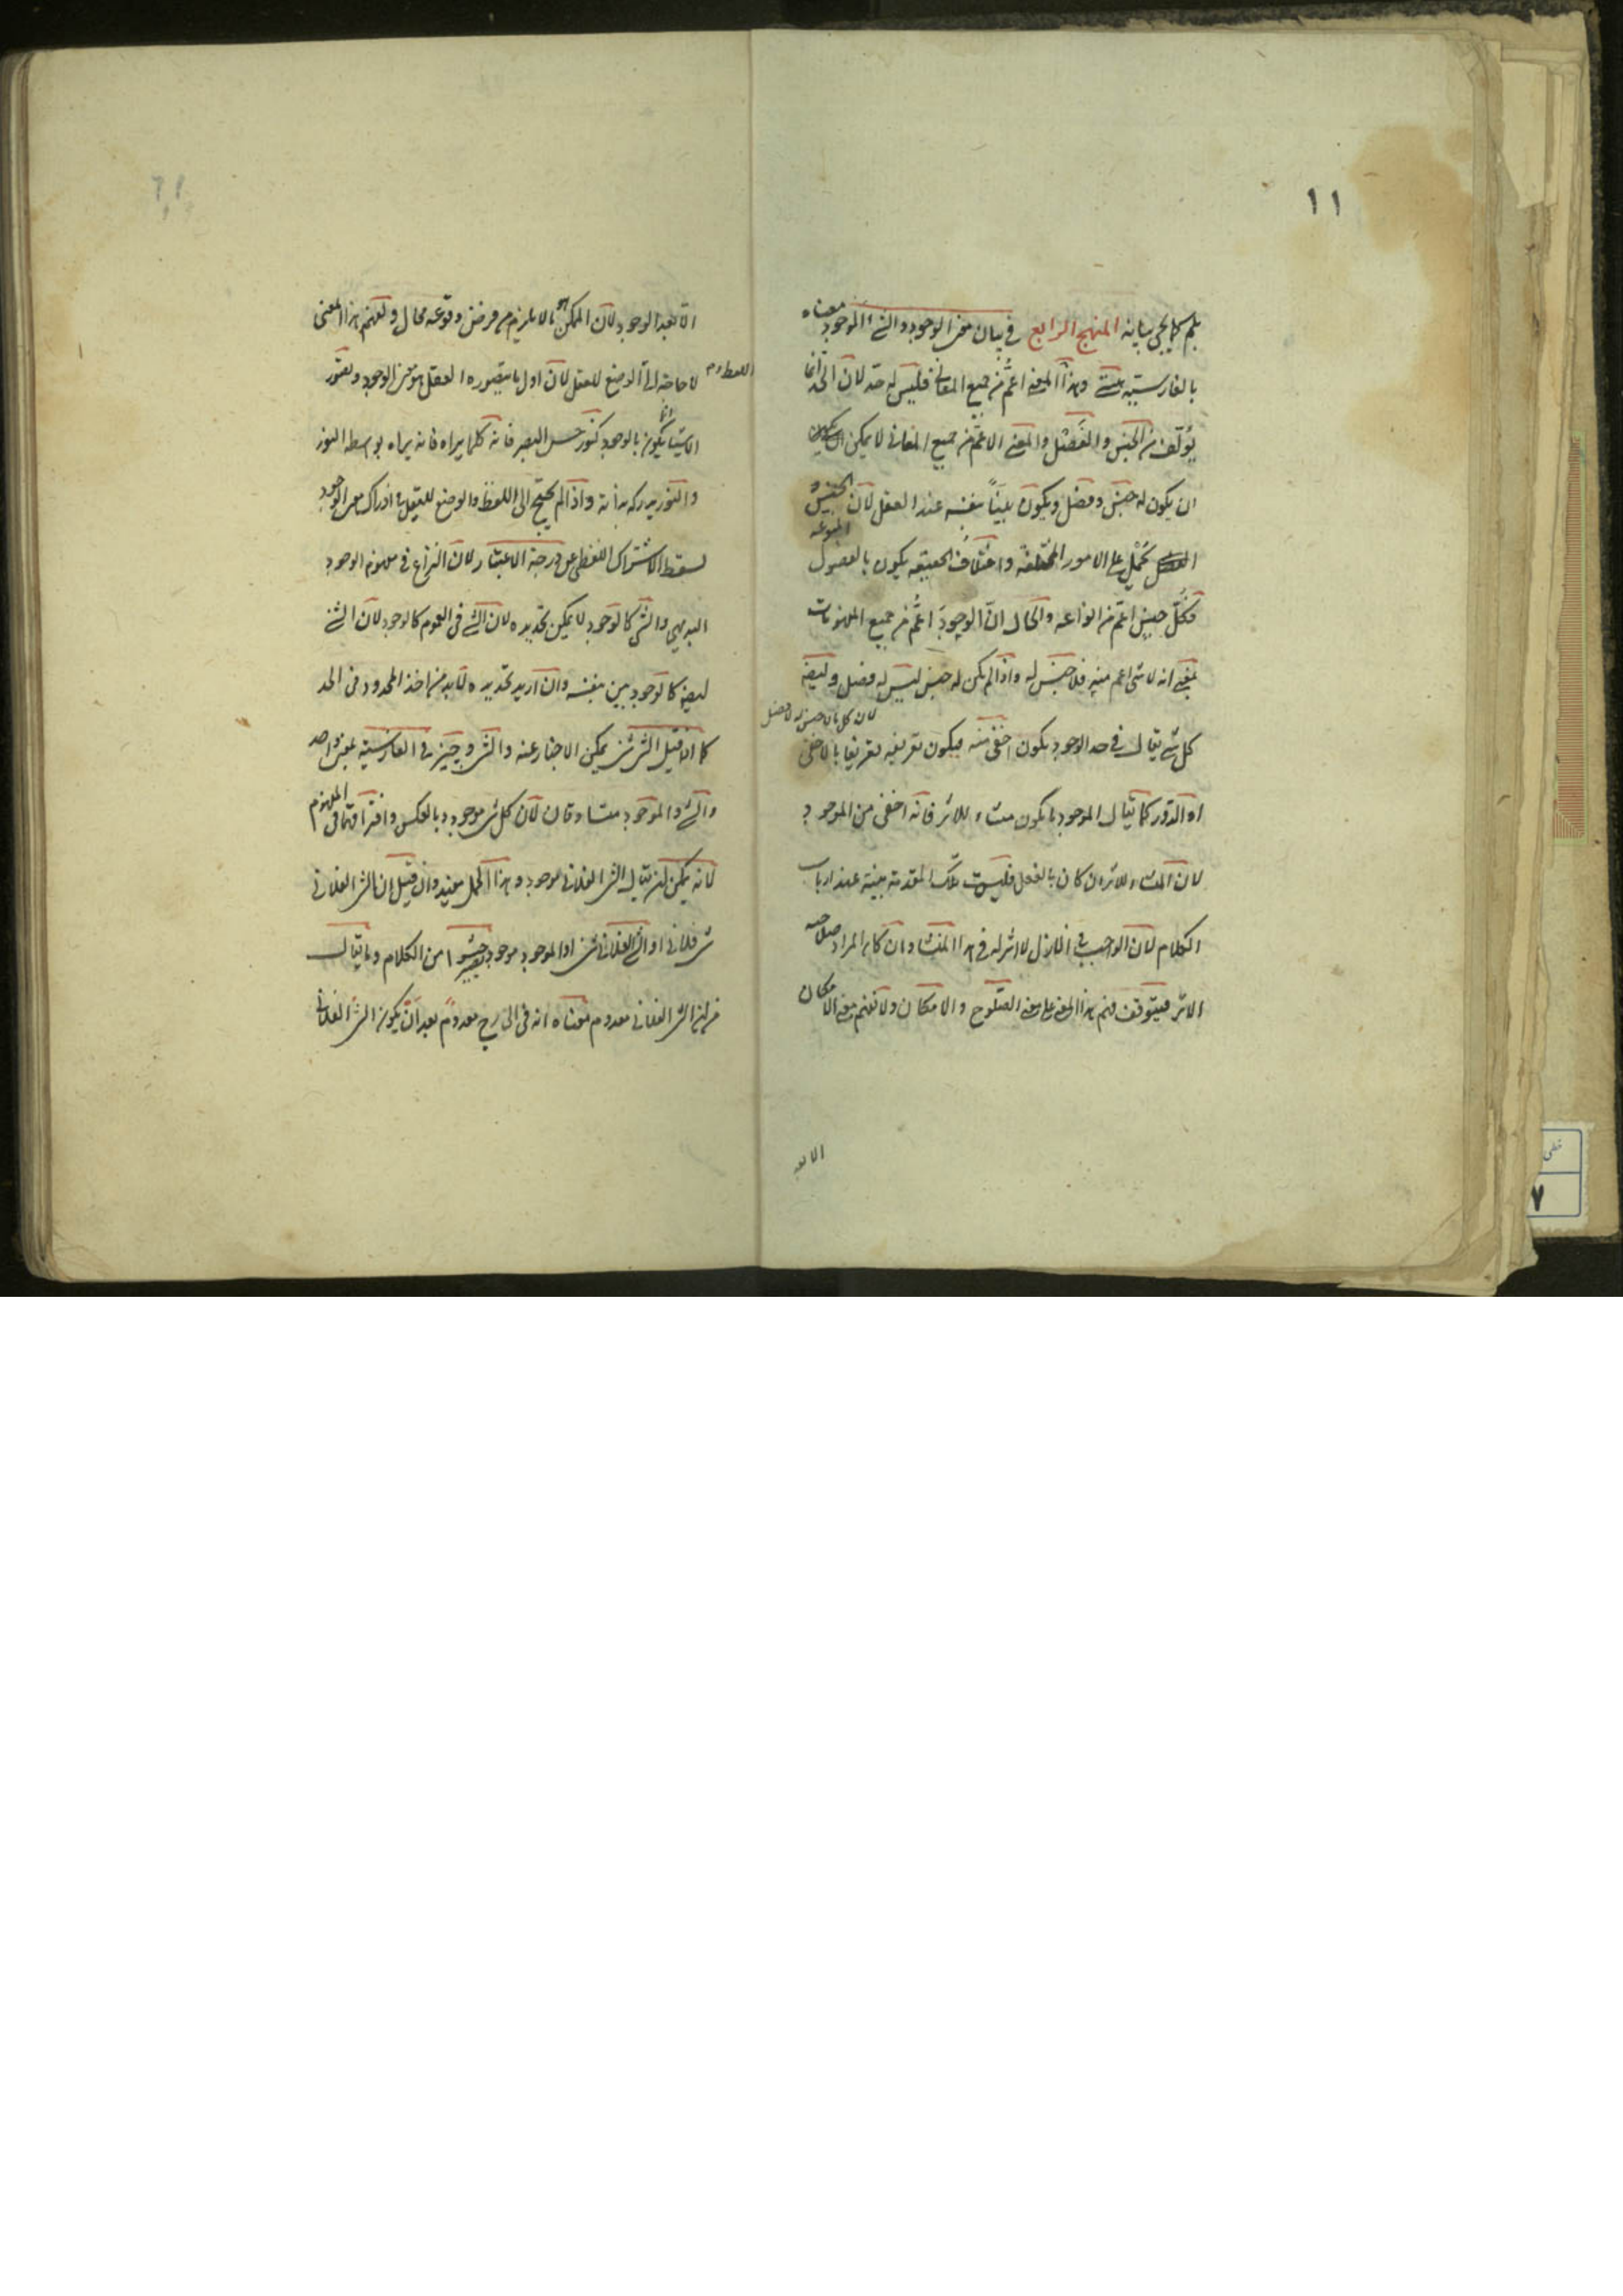 ١١
بلم كما يجئ بيانه المنهج الرابع في بيان معنى الوجود والشئ الموجود معناه
بالفارسية هستى وهذا المعنى اعم من جميع المعانى فليس له حد لان الحد انما
يؤلف من الجنس والفصل والمعنى الاعم من جميع المعانى لا يمكن
ان يكون له جنس وفصل ويكون بينا بنفسه عند العقل لان الجنس
يحمل على الامور المختلفة واختلاف الحقيقه يكون بالفصول المنوعه
فكل جنس اعم من انواعه والحال ان الوجود اعم من جميع المفهومات
بمعنى انه لا شئ اعم منه فلا جنس له واذا لم يكن له جنس ليس له فصل وايضا
لان كل ما لا جنس له لا فصل
كل شئ يقال في حد الوجود يكون اخفى منه فيكون تعريفه تعريفا بالاخفى
او الدور كما يقال الموجود ما يكون منشاء للاثر فانه اخفى من الموجود
لان المنشاء للاثر ان كان بالفعل فليست تلك المقدمة بينة عند ارباب
الكلام لان الواجب في الازل لا اثر له في هذا المنشا وان كان المراد صلاحيه
الاثر فيتوقف فهم هذا المعنى على معنى الصلوح والامكان ولا نفهم معنى الامكان
الا بعد
الا بعد الوجود لان الممكن هو ما لا يلزم من فرض وقوعه محال ولفهم هذا المعنى
لا حاجة الى الوضع للعقل لان اول ما يتصوره العقل هو معنى الوجود وتصور
الاشياء انما يكون بالوجود كنور حس البصر فانه كلما يراه فانه يراه بواسطه النور
والنور يدركه بذاته واذا لم يحتج الى اللفظ والوضع للعقل في ادراك معنى الوجود
لسقط الاشتراك اللفظى عن درجة الاعتبار لان النزاع في مفهوم الوجود
البديهى والشئ كالوجود لا يمكن تحديده لان الشئ في العموم كالوجود لان الشئ
ايضا كالوجود بين بنفسه وان اريد تحديده لابد من اخذ المحدود في الحد
كما اذا قيل الشئ شئ يمكن الاخبار عنه والشئ وچيز في الفارسية بمعنى واحد
والشئ والموجود متساوقان لان كل شئ موجود وبالعكس وافتراقهما في المفهوم
لانه يمكن ان يقال الشئ الفلانى موجود وهذا الحمل مفيد وان قيل ان الشئ الفلانى
شئ فلانى او الشئ الفلانى شئ او الموجود موجود يصير حشوا من الكلام وما يقال
من ان الشئ الفلانى معدوم معناه انه في الخارج معدوم بعد ان يكون الشئ الفلانى